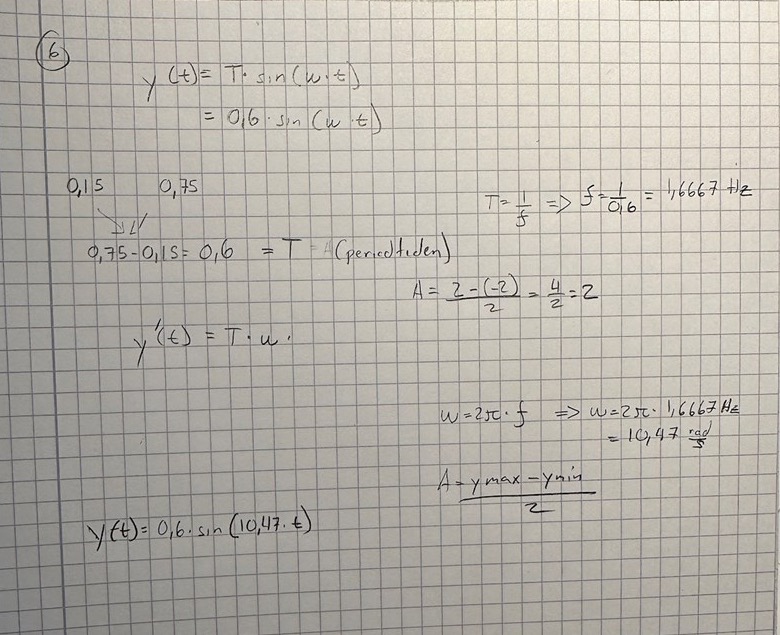 6
y(t) = T · sin(w · t)
= 0,6 · sin(w · t)
0,15 0,75
T = 1/f => f = 1/0,6 = 1,6667 Hz
0,75 - 0,15 = 0,6 = T (periodtiden)
A = (2 - (-2))/2 = 4/2 = 2
y'(t) = T · w ·
w = 2π · f => w = 2π · 1,6667 Hz
= 10,47 rad/s
A = (ymax - ymin)/2
y(t) = 0,6 · sin(10,47 · t)